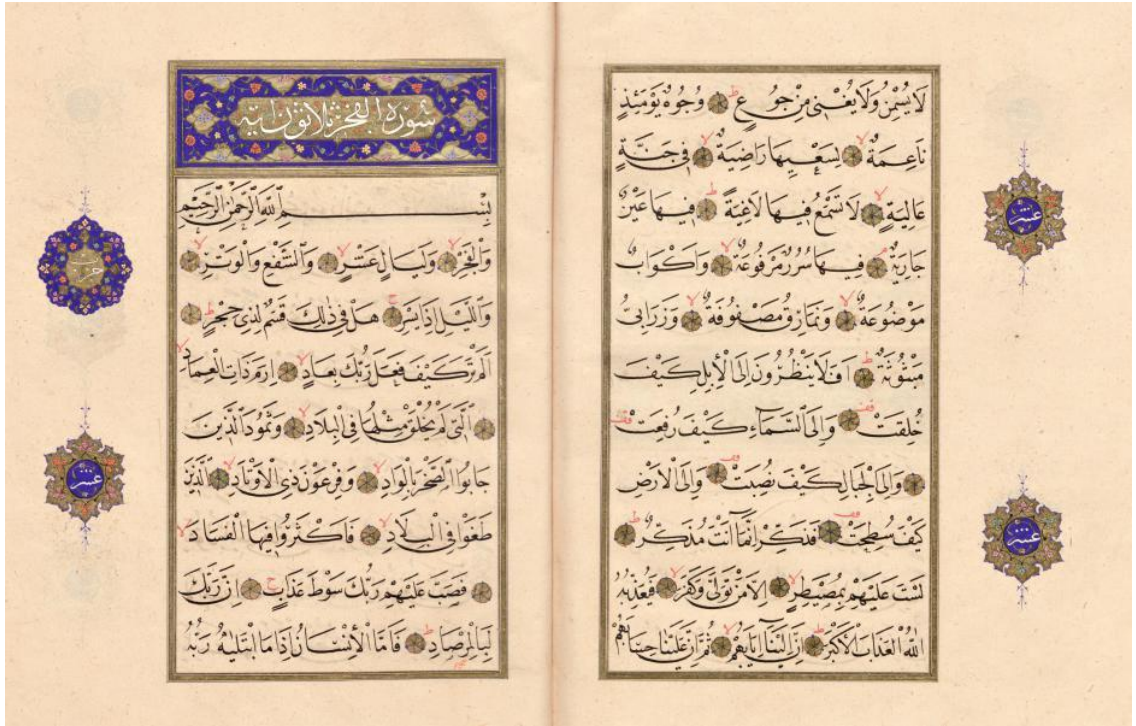 لَا يُسْمِنُ وَلَا يُغْنِي مِنْ جُوعٍ ط وُجُوهٌ يَوْمَئِذٍ
نَاعِمَةٌ لا لِسَعْيِهَا رَاضِيَةٌ لا فِي جَنَّةٍ
عَالِيَةٍ لا لَا تَسْمَعُ فِيهَا لَاغِيَةً ط فِيهَا عَيْنٌ
جَارِيَةٌ م فِيهَا سُرُرٌ مَرْفُوعَةٌ لا وَاَكْوَابٌ
مَوْضُوعَةٌ لا وَنَمَارِقُ مَصْفُوفَةٌ لا وَزَرَابِيُّ
مَبْثُوثَةٌ ط اَفَلَا يَنْظُرُونَ اِلَى الْاِبِلِ كَيْفَ
خُلِقَتْ قف وَاِلَى السَّمَاءِ كَيْفَ رُفِعَتْ قف
وَاِلَى الْجِبَالِ كَيْفَ نُصِبَتْ قف وَاِلَى الْاَرْضِ
كَيْفَ سُطِحَتْ قف فَذَكِّرْ اِنَّمَا اَنْتَ مُذَكِّرٌ ط
لَسْتَ عَلَيْهِمْ بِمُصَيْطِرٍ لا اِلَّا مَنْ تَوَلّٰى وَكَفَرَ لا فَيُعَذِّبُهُ
اللّٰهُ الْعَذَابَ الْاَكْبَرَ ط اِنَّ اِلَيْنَا اِيَابَهُمْ لا ثُمَّ اِنَّ عَلَيْنَا حِسَابَهُمْ
عشر
عشر
سُورَةُ الْفَجْرِ ثلاثون اية
بِسْمِ اللّٰهِ الرَّحْمٰنِ الرَّحِيمِ
وَالْفَجْرِ لا وَلَيَالٍ عَشْرٍ لا وَالشَّفْعِ وَالْوَتْرِ لا
وَالَّيْلِ اِذَا يَسْرِ ج هَلْ فِي ذٰلِكَ قَسَمٌ لِذِي حِجْرٍ ط
اَلَمْ تَرَ كَيْفَ فَعَلَ رَبُّكَ بِعَادٍ لا اِرَمَ ذَاتِ الْعِمَادِ لا
اَلَّتِي لَمْ يُخْلَقْ مِثْلُهَا فِي الْبِلَادِ لا وَثَمُودَ الَّذِينَ
جَابُوا الصَّخْرَ بِالْوَادِ لا وَفِرْعَوْنَ ذِي الْاَوْتَادِ لا اَلَّذِينَ
طَغَوْا فِي الْبِلَادِ لا فَاَكْثَرُوا فِيهَا الْفَسَادَ لا
فَصَبَّ عَلَيْهِمْ رَبُّكَ سَوْطَ عَذَابٍ ج اِنَّ رَبَّكَ
لَبِالْمِرْصَادِ ط فَاَمَّا الْاِنْسَانُ اِذَا مَا ابْتَلٰيهُ رَبُّهُ
حزب
عشر